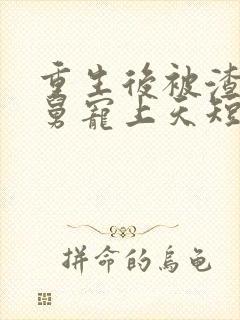 重生後被渣
舅寵上天短
拼命的烏龜